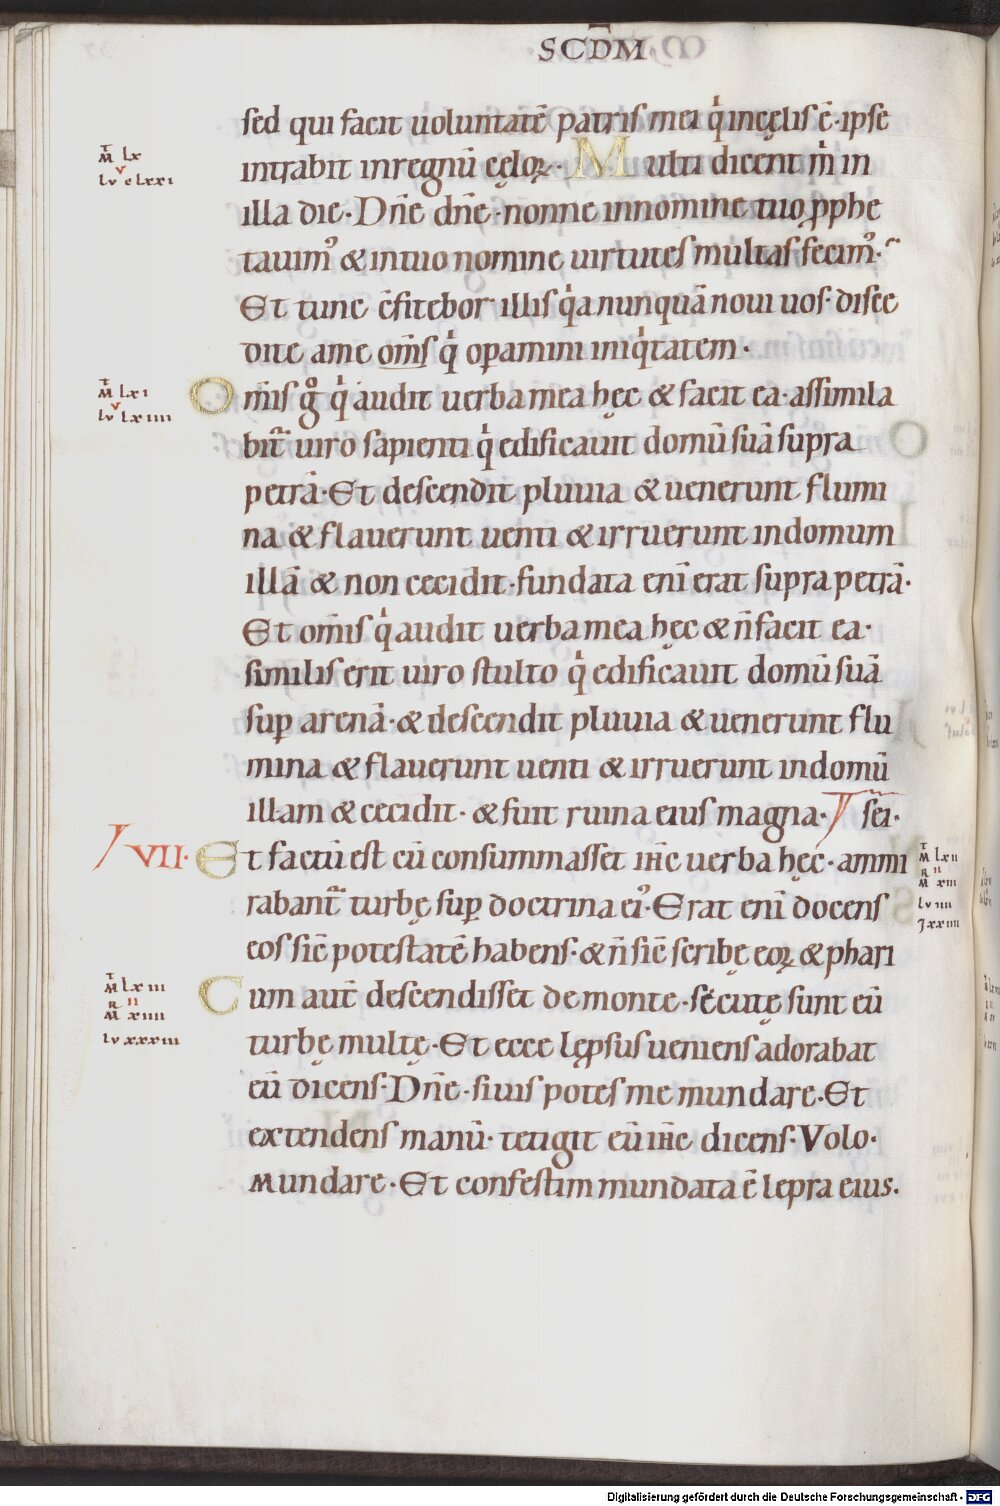 SCDM̄
sed qui facit uoluntatē patris mei q̇incęlis ē·ipse
M̄ lx
lv clxxi
intrabit inregnū cęloꝝ· Multi dicent m̄ in
illa die·Dn̄e dn̄e·nonne innomine tuo ꝓphe
tauimꝰ & intuo nomine uirtutes multas fecimꝰ·
Et tunc c̄fitebor illis q̇a nunquā noui uos·disce
dite ame om̄s q̇ oꝑamini iniq̇tatem·
M̄ lxi
lv lxiiii
Om̄is g̊ q̇ audit uerba mea hęc & facit ea·assimila
bit᷑ uiro sapienti q̇ edificauit domū suā supra
petrā·Et descendit pluuia & uenerunt flumi
na & flauerunt uenti & irruerunt indomum
illā & non cecidit·fundata eni̅ erat supra petrā·
Et om̄is q̇audit uerba mea hęc & n̄ facit ea·
similis erit uiro stulto q̇ edificauit domū suā
suꝑ arenā·& descendit pluuia & uenerunt flu
mina & flauerunt uenti & irruerunt indomū
illam & cecidit·& fuit ruina eius magna· sei·
VII· Et factū est cū consummasset ih̄c uerba hęc·ammi
M̄ lxii
R M̄ xiii
lv iiii
J xxiiii
rabant᷑ turbę suꝑ doctrina eiꝰ·Erat eni̅ docens
eos sic̄ potestatē habens·& n̄ sic̄ scribę eoꝝ & phari
M̄ lxiii
R M̄ xiiii
lv xxxiii
Cum aut̄ descendisset de monte·secutę sunt eū
turbę multę·Et ecce lęprosus ueniens adorabat
eū dicens·Dn̄e·siuis potes me mundare·Et
extendens manū·tetigit eū ih̄c dicens·Volo·
Mundare·Et confestim mundata ē lepra eius.
Digitalisierung gefördert durch die Deutsche Forschungsgemeinschaft - DFG